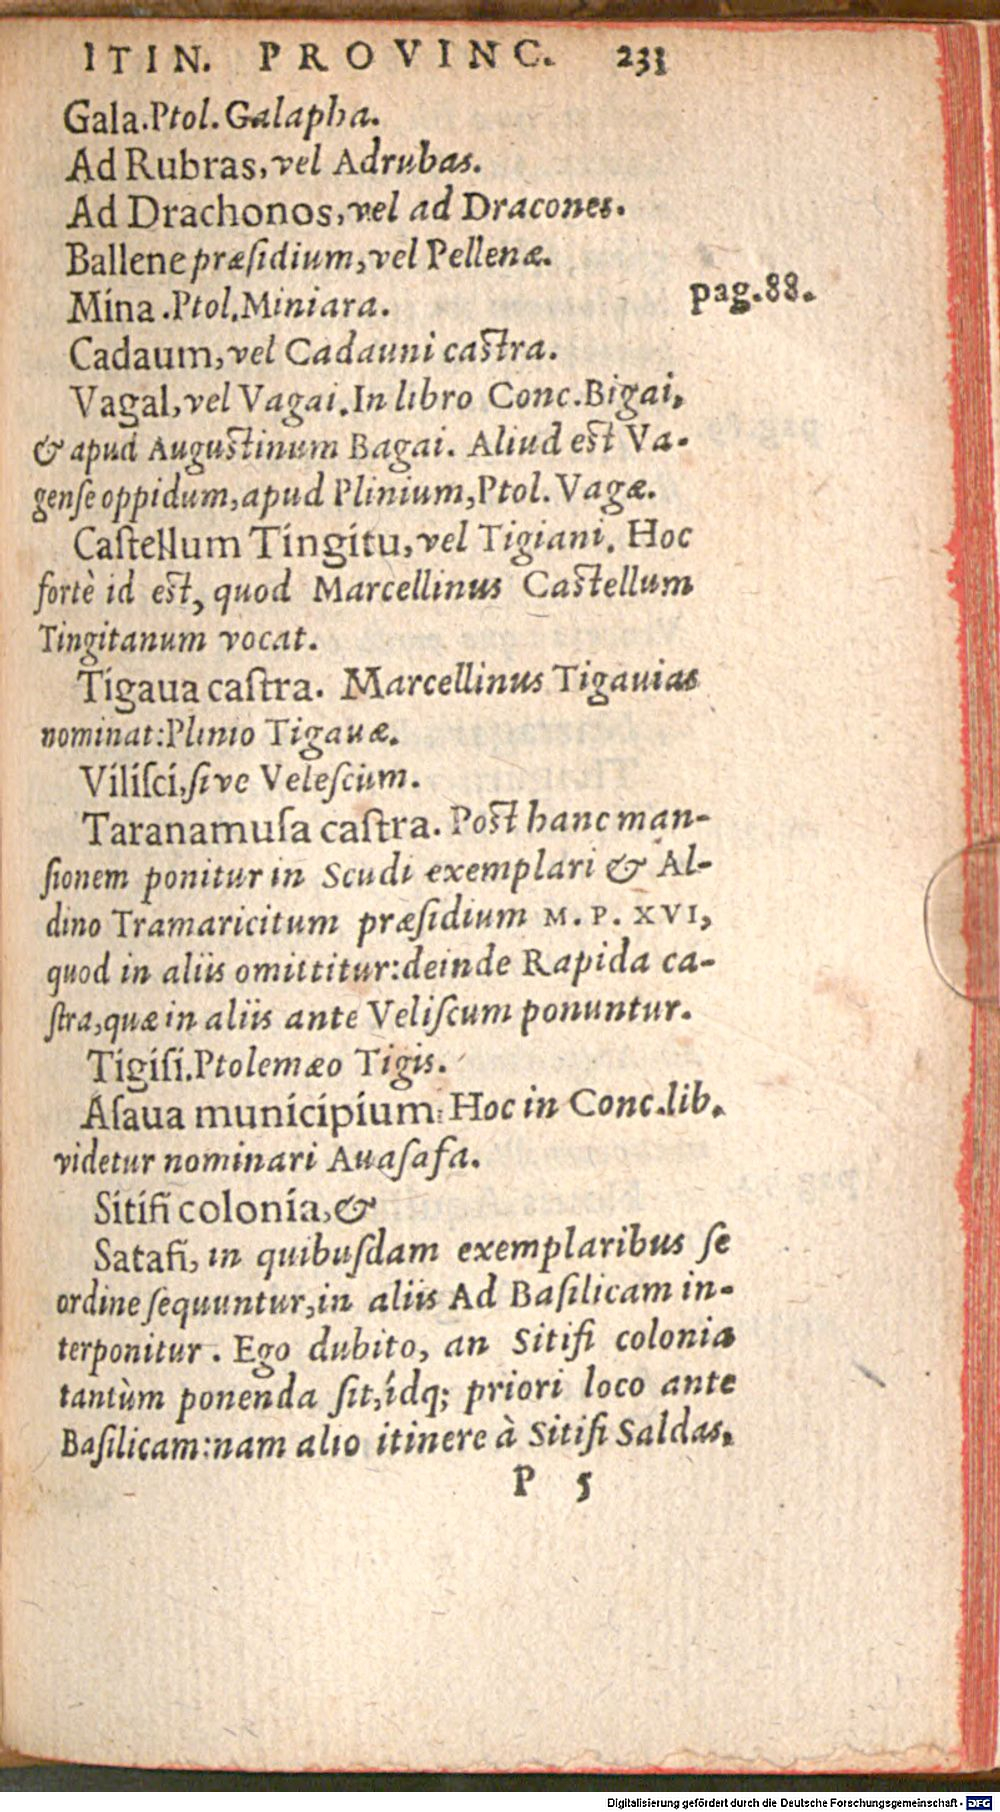 ITIN. PROVINC. 231
Gala. Ptol. Galapha.
Ad Rubras, vel Adrubas.
Ad Drachonos, vel ad Dracones.
Ballene præſidium, vel Pellenæ.
Mina. Ptol. Miniara. pag. 88.
Cadaum, vel Cadauni caſtra.
Vagal, vel Vagai. In libro Conc. Bigai,
& apud Auguſtinum Bagai. Aliud eſt Va-
genſe oppidum, apud Plinium, Ptol. Vagæ.
Caſtellum Tingitu, vel Tigiani. Hoc
fortè id eſt, quod Marcellinus Caſtellum
Tingitanum vocat.
Tigaua caſtra. Marcellinus Tigauias
nominat: Plinio Tigauæ.
Viliſci, ſive Veleſcium.
Taranamuſa caſtra. Poſt hanc man-
ſionem ponitur in Scudi exemplari & Al-
dino Tramaricitum præſidium M. P. XVI,
quod in aliis omittitur: deinde Rapida ca-
ſtra, quæ in aliis ante Veliſcum ponuntur.
Tigiſi. Ptolemæo Tigis.
Aſaua municipium: Hoc in Conc. lib.
videtur nominari Auaſafa.
Sitifi colonia, &
Satafi, in quibuſdam exemplaribus ſe
ordine ſequuntur, in aliis Ad Baſilicam in-
terponitur. Ego dubito, an Sitifi colonia
tantùm ponenda ſit, idq; priori loco ante
Baſilicam: nam alio itinere à Sitifi Saldas,
P 5
Digitalisierung gefördert durch die Deutsche Forschungsgemeinschaft - DFG